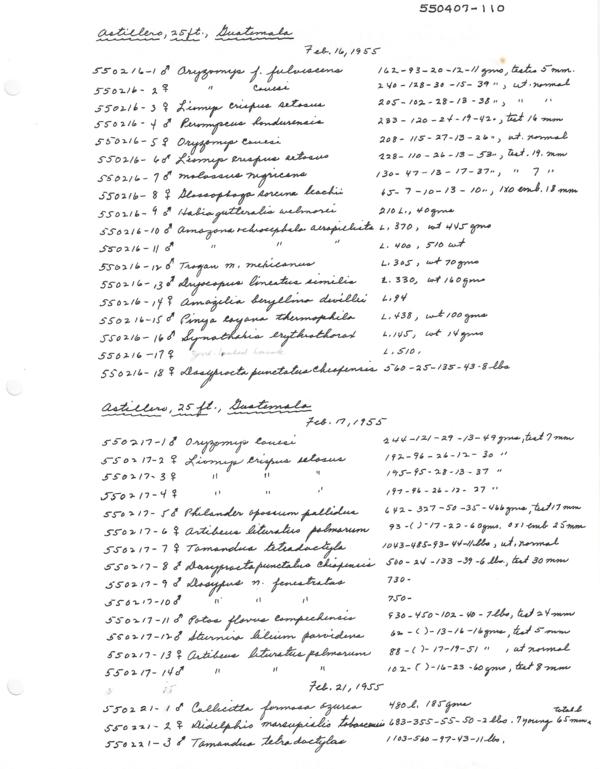 550407-110
Astillero, 25ft., Guatemala
Feb. 16, 1955
550216-1♂ Oryzomys f. fulvescens 162-93-20-12-11 gms, testes 5 mm.
550216-2♀ " couesi 240-128-30-15-39 ", ut. normal
550216-3♀ Liomys crispus setosus 205-102-28-13-38 ", " "
550216-4♂ Peromyscus hondurensis 233-120-24-19-42 ", test 16 mm
550216-5♀ Oryzomys couesi 208-115-27-13-26 ", ut. normal
550216-6♂ Liomys crispus setosus 228-110-26-13-53 ", test. 19. mm
550216-7♂ Molossus nigricans 130-47-13-17-37 ", " 7 "
550216-8♀ Glossophaga soricina leachii 65-7-10-13-10 ", 1X0 emb. 18 mm
550216-9♂ Habia gutteralis salvinii 210 L., 40 gms
550216-10♂ Amazona ochrocephala auropalliata L. 370, wt 445 gms
550216-11♂ " " " L. 400, 510 wt
550216-12♂ Trogon m. mexicanus L. 305, wt 70 gms
550216-13♂ Dryocopus lineatus similis L. 330, wt 160 gms
550216-14♀ Amazilia beryllina devillei L. 94
550216-15♂ Piaya cayana thermophila L. 438, wt 100 gms
550216-16♂ Synallaxis erythrothorax L. 145, wt 14 gms
550216-17♀ L. 510.
550216-18♀ Dasyprocta punctatus chiapensis 560-25-135-43-8 lbs
Astillero, 25 ft., Guatemala
Feb. 17, 1955
550217-1♂ Oryzomys couesi 244-121-29-13-49 gms, test 7 mm
550217-2♀ Liomys crispus setosus 192-96-26-12-30 "
550217-3♀ " " " 195-95-28-13-37 "
550217-4♀ " " " 197-96-26-12-27 "
550217-5♂ Philander opossum pallidus 642-327-50-35-466 gms, test 17 mm
550217-6♀ Artibeus lituratus palmarum 93-( )-17-22-60 gms. 0x1 emb 25 mm
550217-7♀ Tamandua tetradactyla 1043-485-93-44-11 lbs, ut. normal
550217-8♂ Dasyprocta punctatus chiapensis 500-24-133-39-6 lbs, test 30 mm
550217-9♂ Dasypus n. fenestratus 730-
550217-10♂ " " " 750-
550217-11♂ Potos flavus campechensis 930-450-102-40-7 lbs, test 24 mm
550217-12♂ Sturnira lilium parvidens 62-( )-13-16-16 gms, test 5 mm
550217-13♀ Artibeus lituratus palmarum 88-( )-17-19-51 ", ut normal
550217-14♂ " " " 102-( )-16-23-60 gms, test 8 mm
Feb. 21, 1955
550221-1♂ Calocitta formosa azurea 480 l. 185 gms
total L
550221-2♀ Didelphis marsupialis tabascensis 683-355-55-50-2 lbs. 7 young 65 mm.
550221-3♂ Tamandua tetradactylas 1103-560-97-43-11 lbs.